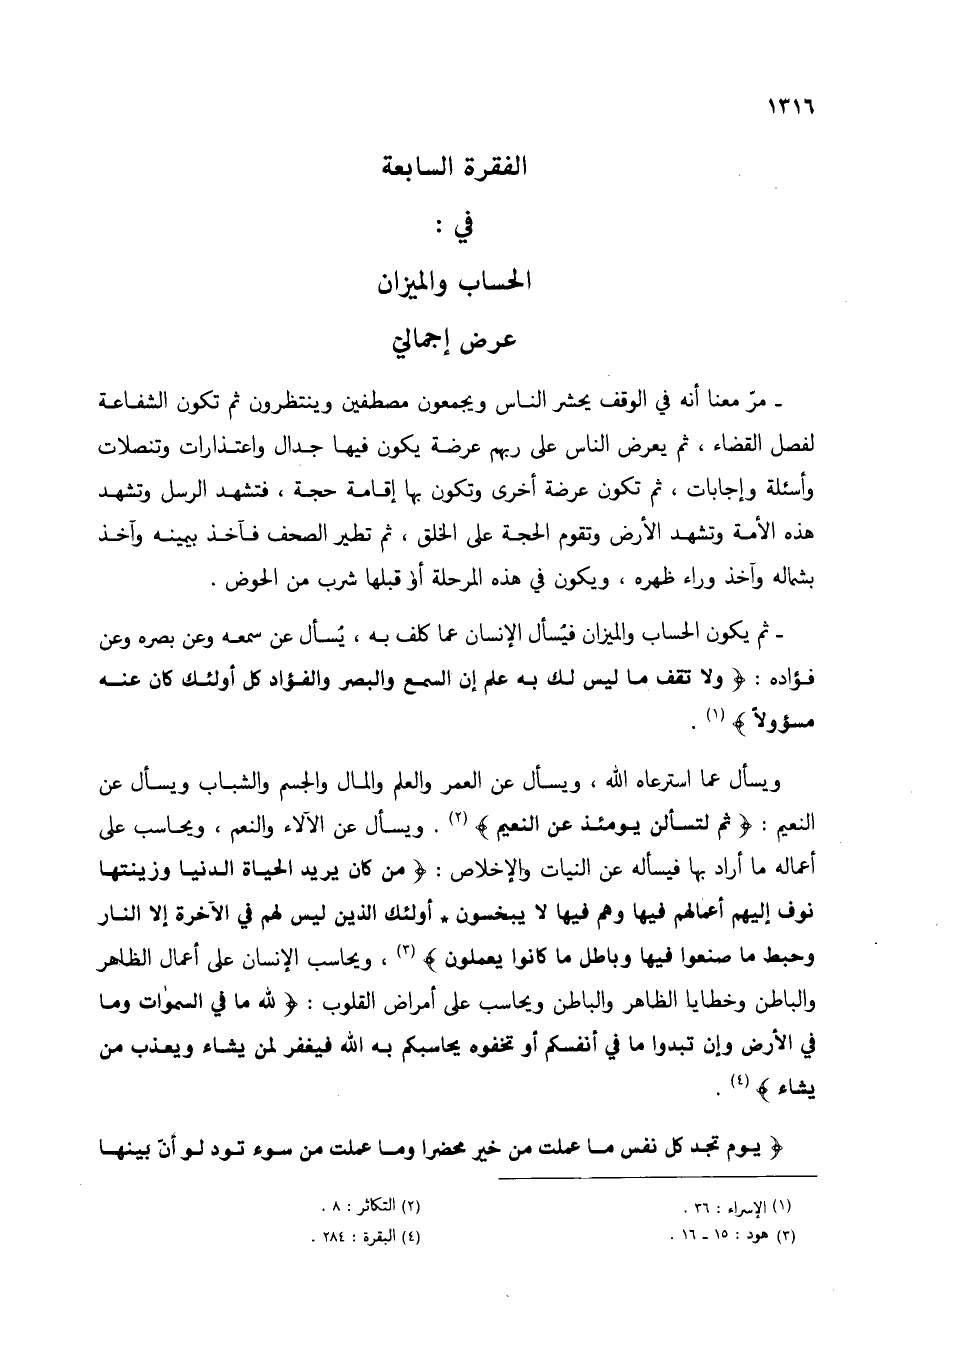 ١٣١٦
الفقرة السابعة
في :
الحساب والميزان
عرض إجمالي
ـ مرّ معنا أنه في الوقف يحشر الناس ويجمعون مصطفين وينتظرون ثم تكون الشفاعة
لفصل القضاء ، ثم يعرض الناس على ربهم عرضة يكون فيها جدال واعتذارات وتنصلات
وأسئلة وإجابات ، ثم تكون عرضة أخرى وتكون بها إقامة حجة ، فتشهد الرسل وتشهد
هذه الأمة وتشهد الأرض وتقوم الحجة على الخلق ، ثم تطير الصحف فآخذ بيمينه وآخذ
بشماله وآخذ وراء ظهره ، ويكون في هذه المرحلة أو قبلها شرب من الحوض .
ـ ثم يكون الحساب والميزان فيُسأل الإنسان عما كلف به ، يُسأل عن سمعه وعن بصره وعن
فؤاده : ﴿ ولا تقف ما ليس لك به علم إن السمع والبصر والفؤاد كل أولئك كان عنه
مسؤولاً ﴾ (١) .
ويسأل عما استرعاه الله ، ويسأل عن العمر والعلم والمال والجسم والشباب ويسأل عن
النعيم : ﴿ ثم لتسألن يومئذ عن النعيم ﴾ (٢) . ويسأل عن الآلاء والنعم ، ويحاسب على
أعماله ما أراد بها فيسأله عن النيات والإخلاص : ﴿ من كان يريد الحياة الدنيا وزينتها
نوف إليهم أعمالهم فيها وهم فيها لا يبخسون * أولئك الذين ليس لهم في الآخرة إلا النار
وحبط ما صنعوا فيها وباطل ما كانوا يعملون ﴾ (٣) ، ويحاسب الإنسان على أعمال الظاهر
والباطن وخطايا الظاهر والباطن ويحاسب على أمراض القلوب : ﴿ لله ما في السموات وما
في الأرض وإن تبدوا ما في أنفسكم أو تخفوه يحاسبكم به الله فيغفر لمن يشاء ويعذب من
يشاء ﴾ (٤) .
﴿ يوم تجد كل نفس ما عملت من خير محضرا وما عملت من سوء تود لو أنّ بينها
(١) الإسراء : ٣٦ . (٢) التكاثر : ٨ .
(٣) هود : ١٥ ـ ١٦ . (٤) البقرة : ٢٨٤ .